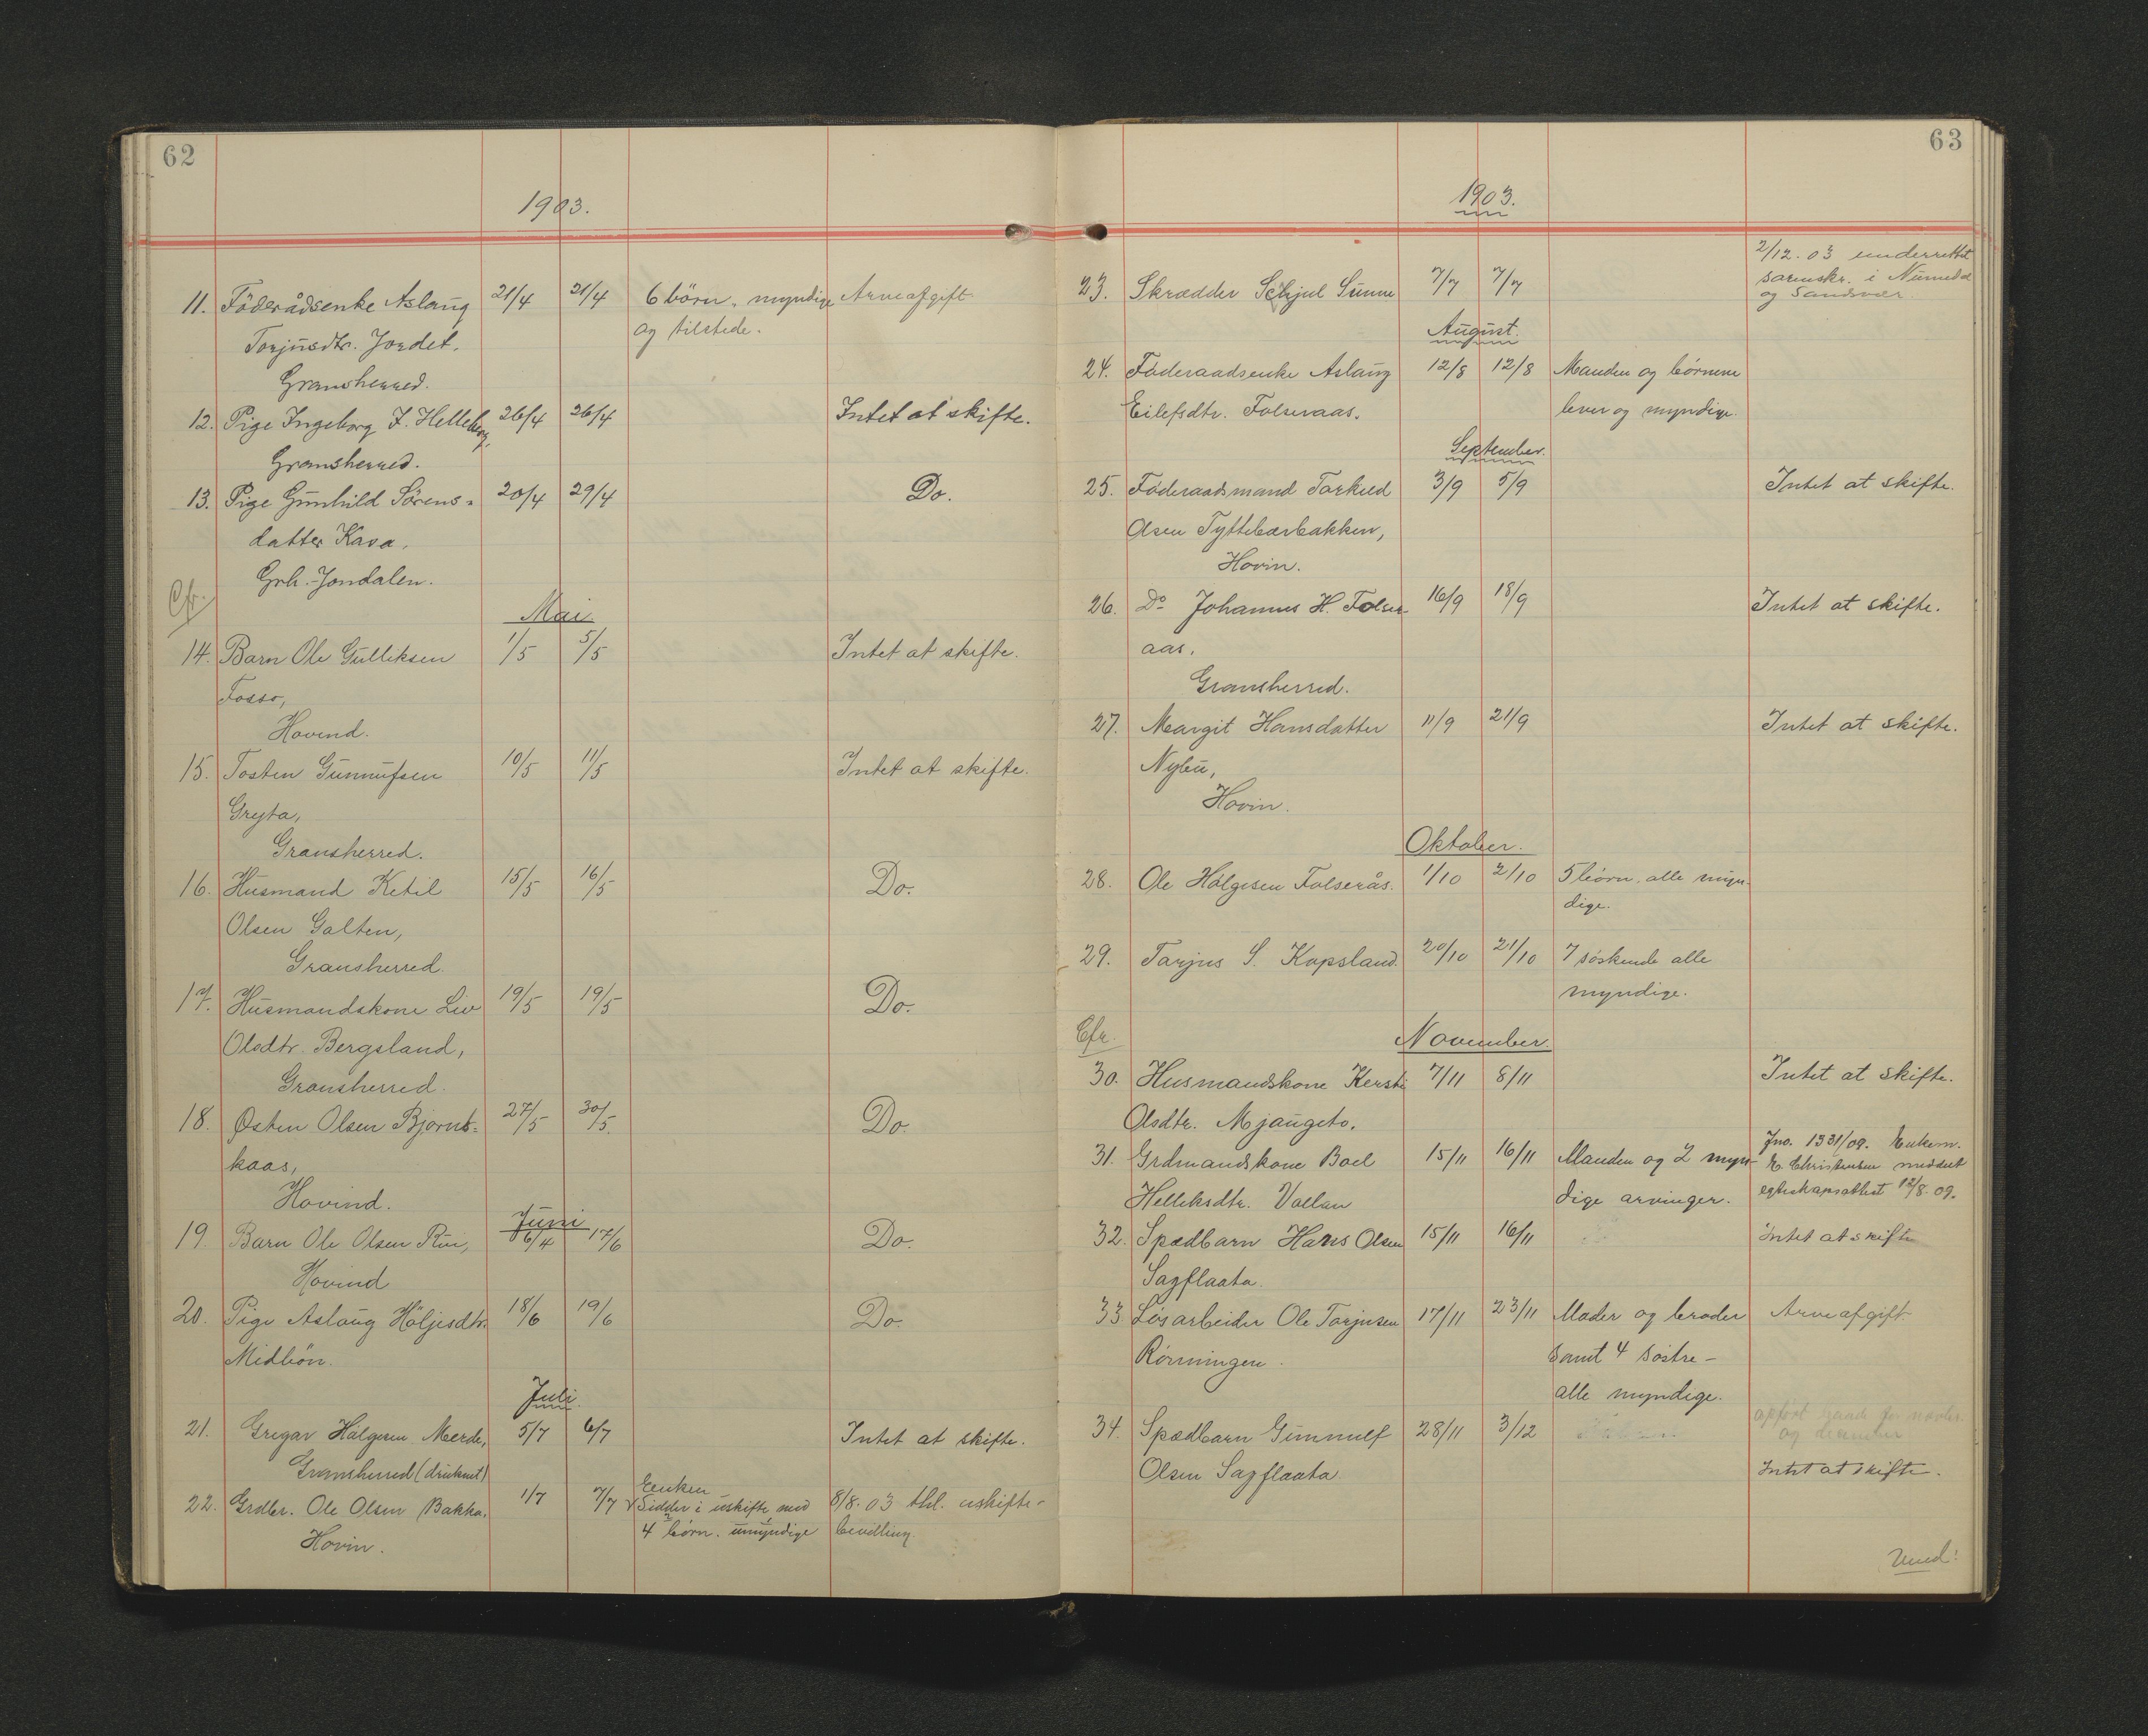 62
1903.
11. Föderådsenke Aslaug 21/4 21/4 6 börn, myndige Arveafgift
Torjusdtr. Jordet. og tilstede.
Gransherred.
12. Pige Ingeborg J. Helleberg, 26/4 26/4 Intet at skifte.
Gransherred.
13. Pige Gunhild Sörens- 20/4 29/4 Do.
datter Kasa,
Grh. Jondalen.
Cfr.
Mai
14. Barn Ole Gulliksen 1/5 5/5 Intet at skifte.
Fosso,
Hovind.
15. Tosten Gunnufsen 10/5 11/5 Intet at skifte.
Gryta,
Gransherred.
16. Husmand Ketil 15/5 16/5 Do.
Olsen Galten,
Gransherred.
17. Husmandskone Liv 19/5 19/5 Do.
Olsdtr. Bergsland,
Gransherred.
18. Østen Olsen Bjornts- 27/5 30/5. Do.
kaas,
Hovind.
Juni
19. Barn Ole Olsen Rui, 6/4 17/6 Do.
Hovind
20. Pige Aslaug Höljesdtr. 18/6 19/6 Do.
Midbön.
Juli
21. Gregar Halgesen Merde, 5/7 6/7 Intet at skifte.
Gransherred (druknet)
Enken
22. Grdbr. Ole Olsen Bakka. 1/7 7/7 Sidder i uskifte med 8/8.03 thl. uskifte-
Hovin. 4 börn. umyndige bevilling.
63
1903.
2/12.03 underrettet
sorenskr. i Numedal
og Sandsvær.
23. Skrædder Schjul Sunne 7/7 7/7
August.
24. Føderaadsenke Aslaug 12/8 12/8 Manden og börnene
Eilefsdtr. Folseraas. lever og myndige.
September.
25. Föderaadsmand Torkild 3/9 5/9 Intet at skifte.
Olsen Tyttebærbakken,
Hovin.
26. Do Johannes H. Folser- 16/9 18/9 Intet at skifte.
aas.
Gransherred.
27. Margit Hansdatter 11/9 21/9 Intet at skifte.
Nybu,
Hovin.
Oktober.
28. Ole Halgesen Folserås. 1/10 2/10 5 börn, alle myn-
dige.
29. Tarjus S. Kopsland. 20/10 21/10 7 söskende alle
myndige.
Cfr.
November.
30. Husmandskone Kersti 7/11 8/11 Intet at skifte.
Olsdtr. Mjaugeto.
31. Grdmandskone Boel 15/11 16/11 Manden og 2 myn- Jno. 1331/09. Enkem.
Helleksdtr. Vallan dige arvinger. E. Christensen meddelt
egteskapsattest 12/8.09.
32. Spædbarn Hans Olsen 15/11 16/11 intet at skifte
Sagflaata.
33. Løsarbeider Ole Torjusen 17/11 23/11 Moder og broder Arveafgift.
Rönningen. samt 4 söstre-
alle myndige.
34. Spædbarn Gunnulf 28/11 3/12
Olsen Sagflaata. Intet at skifte.
Vend!